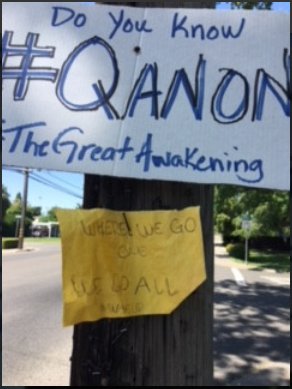 Do You Know
#QANON
#TheGreatAwakening
WHERE WE GO
ONE
WE GO ALL